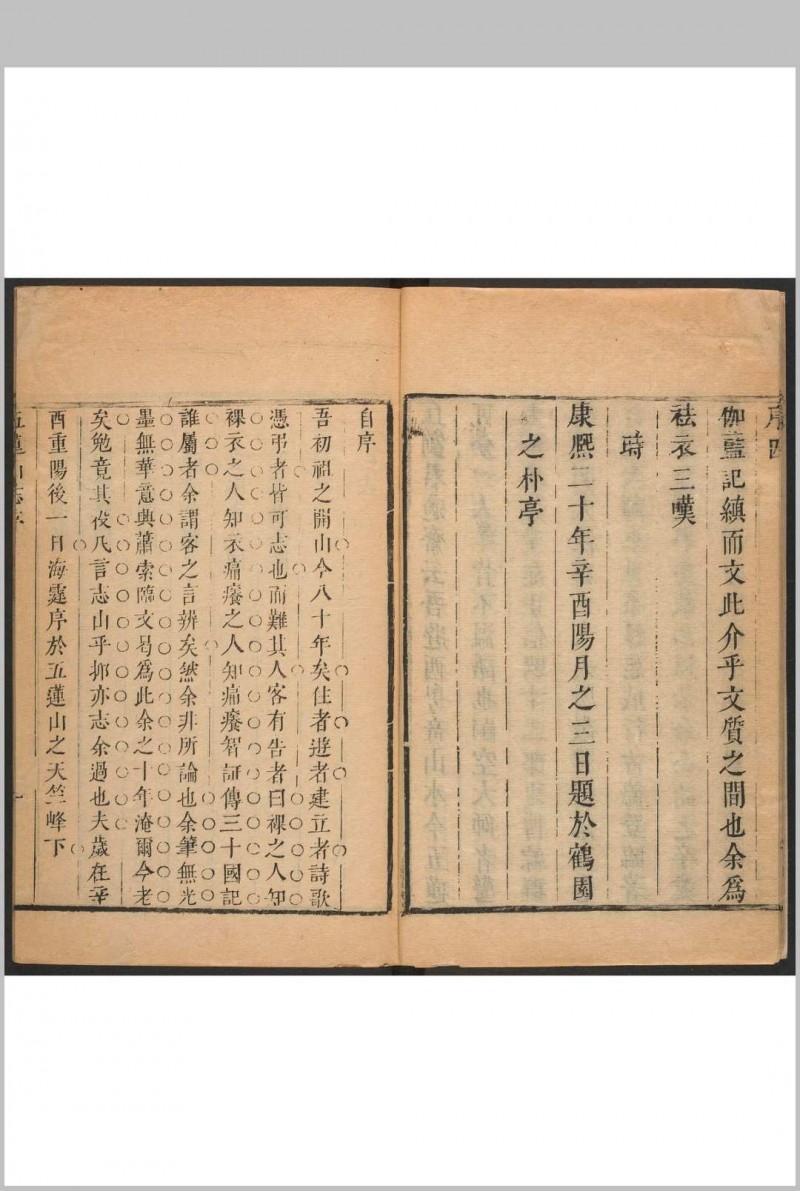 序四
伽藍記縝而文此介乎文質之間也余爲
祛衣三嘆
時
康熙二十年辛酉陽月之三日題於鶴園
之朴亭
自序
吾初祖之開山今八十年矣住者遊者建立者詩歌
憑弔者皆可志也而難其人客有告者曰裸之人知
裸衣之人知衣痛癢之人知痛癢智証傳三十國記
誰屬者余謂客之言辨矣然余非所論也余筆無光
墨無華意興蕭索臨文曷爲此余之十年淹爾今老
矣勉竟其役凡言志山乎抑亦志余過也夫歲在辛
酉重陽後一日海霆序於五蓮山之天竺峰下
五蓮山志序
一